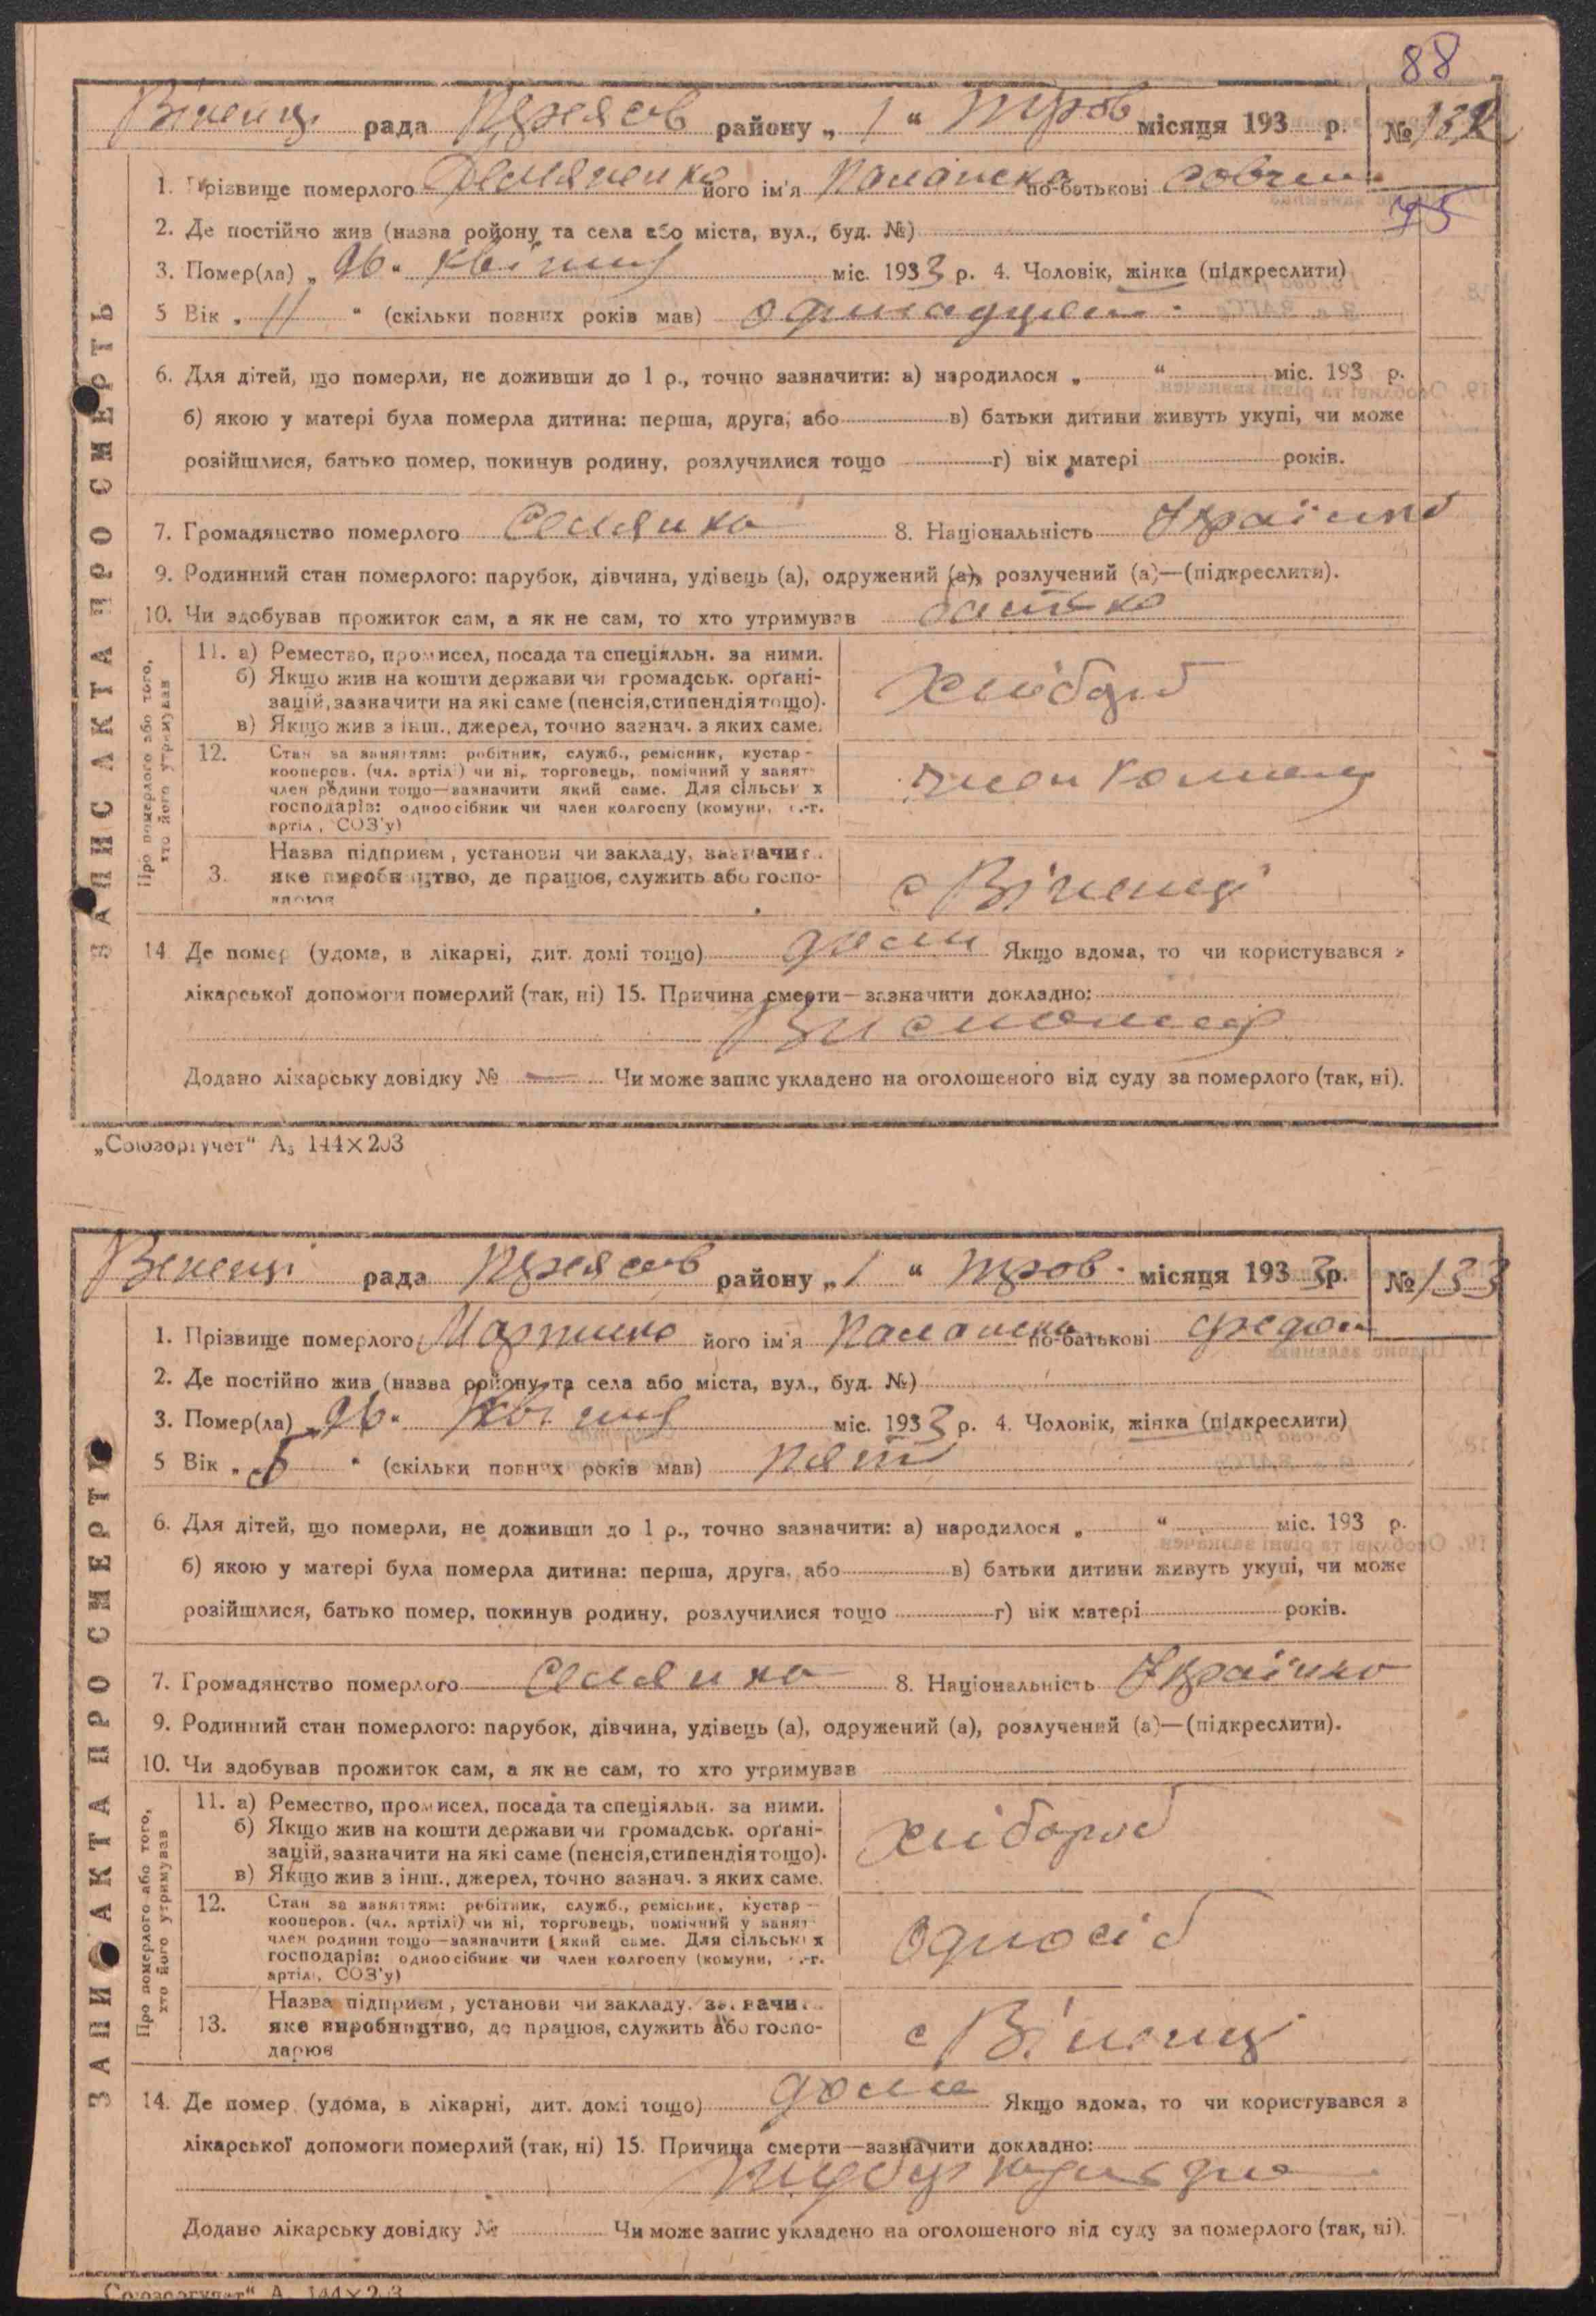 88
рада району „ 1 “ місяця 193 р. № 132
1. Прізвище померлого Демяненко його ім'я Палажка по-батькові
75
2. Де постійно жив (назва району та села або міста, вул., буд. №)
3. Помер(ла) „ 26 “ Квітня міс. 1933 р. 4. Чоловік, жінка (підкреслити)
5 Вік „ 11 “ (скільки повних років мав) одинадцять
6. Для дітей, що померли, не доживши до 1 р., точно зазначити: а) народилося „ “ міс. 193 р.
б) якою у матері була померла дитина: перша, друга, або в) батьки дитини живуть укупі, чи може
розійшлися, батько помер, покинув родину, розлучилися тощо г) вік матері років.
7. Громадянство померлого Селянка 8. Національність Українка
9. Родинний стан померлого: парубок, дівчина, удівець (а), одружений (а), розлучений (а)—(підкреслити).
10. Чи здобував прожиток сам, а як не сам, то хто утримував батько
ЗАПИС АКТА ПРО СМЕРТЬ
Про померлого або того,
хто його утримував
11. а) Ремество, промисел, посада та спеціяльн. за ними.
б) Якщо жив на кошти держави чи громадськ. орґані-
зацій, зазначити на які саме (пенсія, стипендія тощо).
в) Якщо жив з інш., джерел, точно зазнач. з яких саме.
Хлібороб
12. Стан за заняттям: робітник, служб., ремісник, кустар –
кооперов. (чл. артілі) чи ні, торговець, помічний у занят
член родини тощо—зазначити який саме. Для сільськ х
господарів: одноосібник чи член колгоспу (комуни, с.-г.
артіл , СОЗ'у)
член
3. Назва підприєм , установи чи закладу, зазначит
яке виробництво, де працює, служить або госпо-
дарює
с Віненці
14 Де помер (удома, в лікарні, дит. домі тощо) дома Якщо вдома, то чи користувався з
лікарської допомоги померлий (так, ні) 15. Причина смерти—зазначити докладно:
Додано лікарську довідку № — Чи може запис укладено на оголошеного від суду за померлого (так, ні).
„Союзоргучет“ А₅ 144×203
рада району „ 1 “ місяця 1933 р. № 133
1. Прізвище померлого його ім'я Палажка по-батькові Федот
2. Де постійно жив (назва району та села або міста, вул., буд. №)
3. Помер(ла) „ 26 “ Квітня міс. 1933 р. 4. Чоловік, жінка (підкреслити)
5 Вік „ 5 “ (скільки повних років мав) пять
6. Для дітей, що померли, не доживши до 1 р., точно зазначити: а) народилося „ “ міс. 193 р.
б) якою у матері була померла дитина: перша, друга, або в) батьки дитини живуть укупі, чи може
розійшлися, батько помер, покинув родину, розлучилися тощо г) вік матері років.
7. Громадянство померлого Селянка 8. Національність Українка
9. Родинний стан померлого: парубок, дівчина, удівець (а), одружений (а), розлучений (а)—(підкреслити).
10. Чи здобував прожиток сам, а як не сам, то хто утримував
ЗАПИС АКТА ПРО СМЕРТЬ
Про померлого або того,
хто його утримував
11. а) Ремество, промисел, посада та спеціяльн. за ними.
б) Якщо жив на кошти держави чи громадськ. орґані-
зацій, зазначити на які саме (пенсія, стипендія тощо).
в) Якщо жив з інш., джерел, точно зазнач. з яких саме.
хлібороб
12. Стан за заняттям: робітник, служб., ремісник, кустар –
кооперов. (чл. артілі) чи ні, торговець, помічний у занят
член родини тощо—зазначити який саме. Для сільськ х
господарів: одноосібник чи член колгоспу (комуни, с.-г.
артіл , СОЗ'у)
Одноосіб
13. Назва підприєм , установи чи закладу. зазначи
яке виробництво, де працює, служить або госпо-
дарює
с Віненці
14. Де помер (удома, в лікарні, дит. домі тощо) дома Якщо вдома, то чи користувався з
лікарської допомоги померлий (так, ні) 15. Причина смерти—зазначити докладно:
Додано лікарську довідку № Чи може запис укладено на оголошеного від суду за померлого (так, ні).
„Союзоргучет“ А 144×203